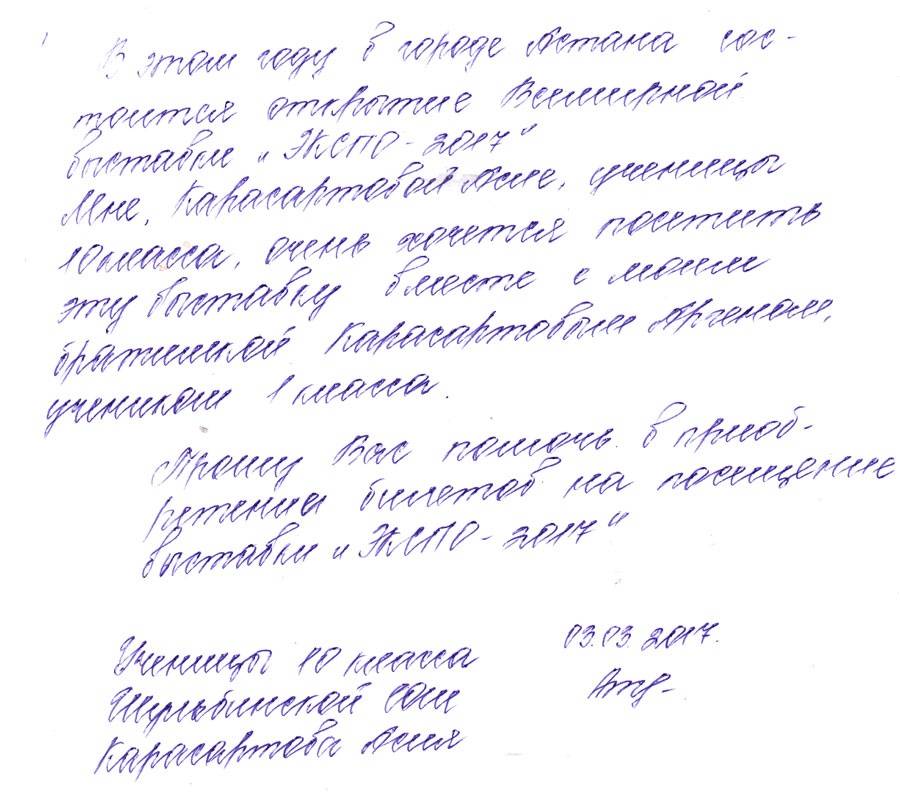 В этом году в городе Астана сос-
тоится открытие Всемирной
выставки „ЭКСПО-2017"
Мне, Карасартовой Асие, ученицы
10 класса, очень хочется посетить
эту выставку вместе с моим
братишкой Карасартовым Аргеном,
учеником 1 класса.
Прошу Вас помочь в приоб-
ретении билетов на посещение
выставки „ЭКСПО-2017"
Ученицы 10 класса 03.03.2017.
Шульбинской СОШ
Карасартова Асия